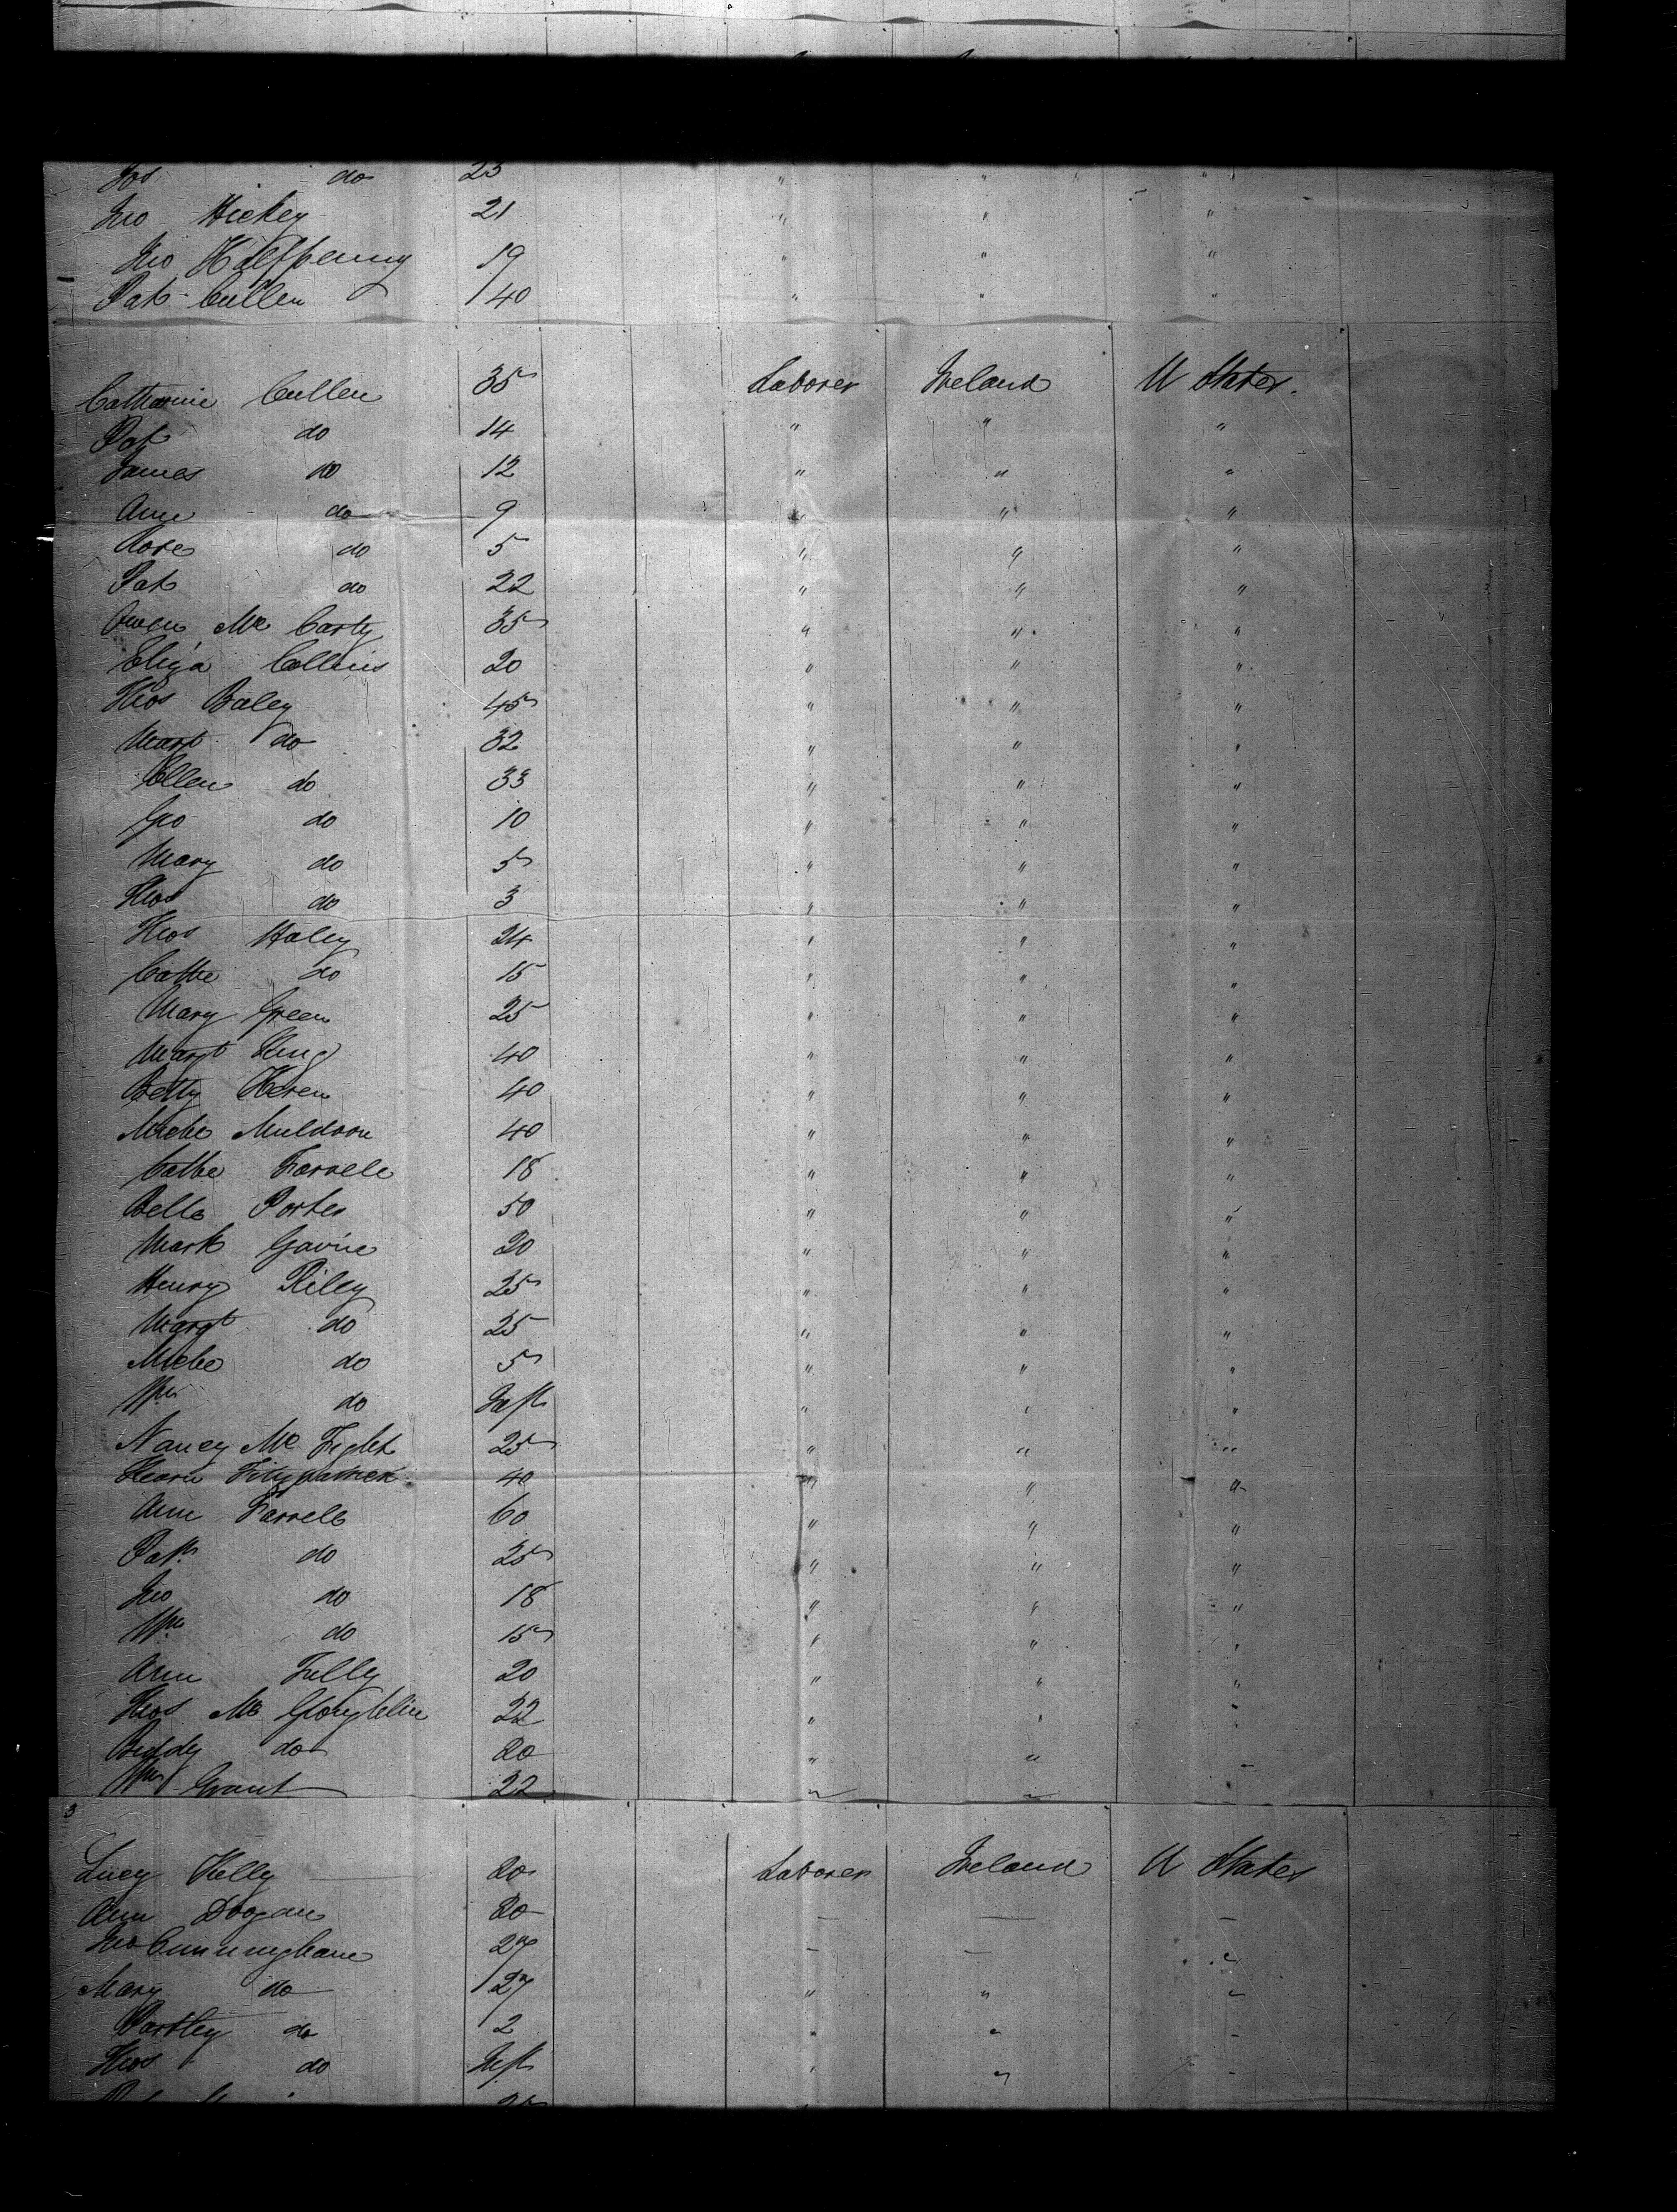 Jos do 23 " " "
Jno Hickey 21 " " "
Jno Halfpenny 19 " " "
Pat Cullen 40 " " "
Catharine Cullen 35 Laborer Ireland U States.
Pat do 14 " " "
James do 12 " " "
Ann do 9 " " "
Rose do 5 " " "
Pat do 22 " " "
Owen Mc Carty 35 " " "
Eliza Collins 20 " " "
Thos Baley 45 " " "
Mart do 32 " " "
Ellen do 33 " " "
Geo do 10 " " "
Mary do 5 " " "
Thos do 3 " " "
Thos Haley 24 " " "
Cathe do 15 " " "
Mary Green 25 " " "
Margt King 40 " " "
Betty Keren 40 " " "
Miche Muldoon 40 " " "
Cathe Farrele 18 " " "
Bella Porter 50 " " "
Mark Gavine 20 " " "
Henry Riley 25 " " "
Margt do 25 " " "
Miche do 5 " " "
Wm do Inft " " "
Nancy Mc Fight 25 " " "
Fitzpatrick 40 " " "
Ann Farrele 60 " " "
Patk do 25 " " "
Jno do 18 " " "
Wm do 15 " " "
Ann Tully 20 " " "
Thos Mc Gloughlin 22 " " "
Biddy do 20 " " "
Wm Grant 22 " "
3
Lucy Kelly 20 Laborer Ireland U States
Ann Doogan 20 — — —
Jno Cunningham 27 — — "
Mary do 27 " " "
Bartley do 2 " " "
Thos do Inft " " "
25